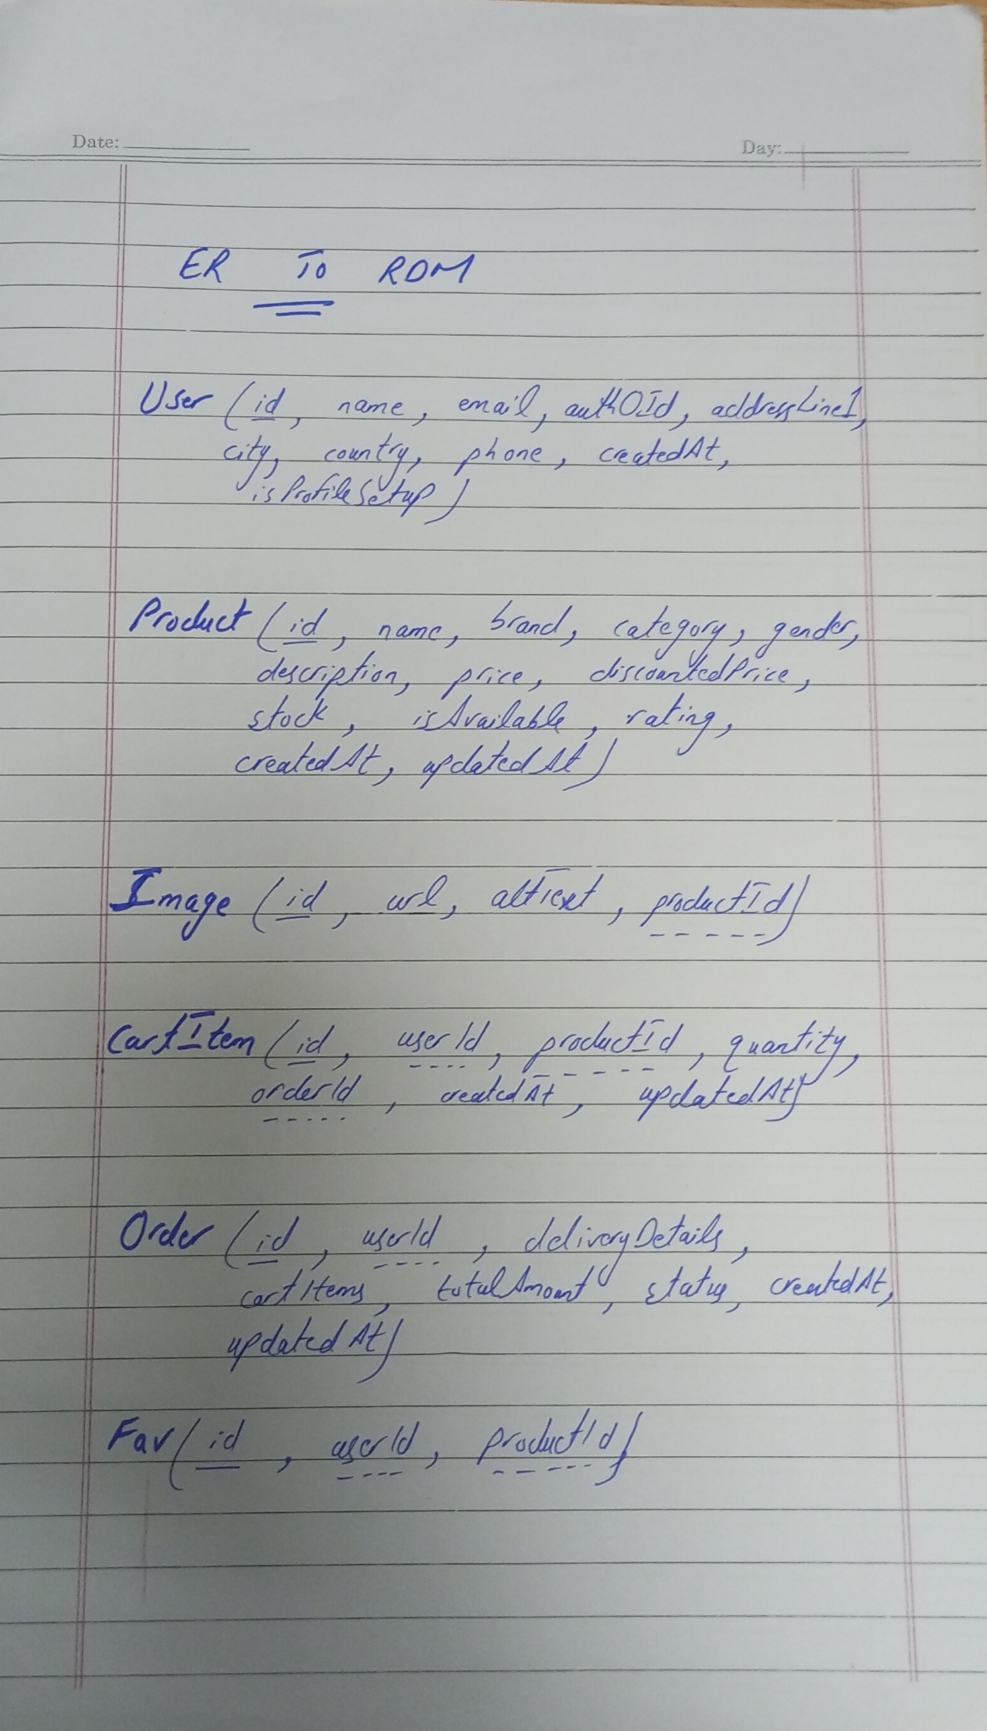 Date:
Day:
ER To RDM
User (id, name, email, authOId, addressLine1,
city, country, phone, createdAt,
isProfileSetup)
Product (id, name, brand, category, gender,
description, price, discountedPrice,
stock, isAvailable, rating,
createdAt, updatedAt)
Image (id, url, altText, productId)
CartItem (id, userId, productId, quantity,
orderId, createdAt, updatedAt)
Order (id, userId, deliveryDetails,
cartItems, totalAmount, status, createdAt,
updatedAt)
Fav (id, userId, productId)